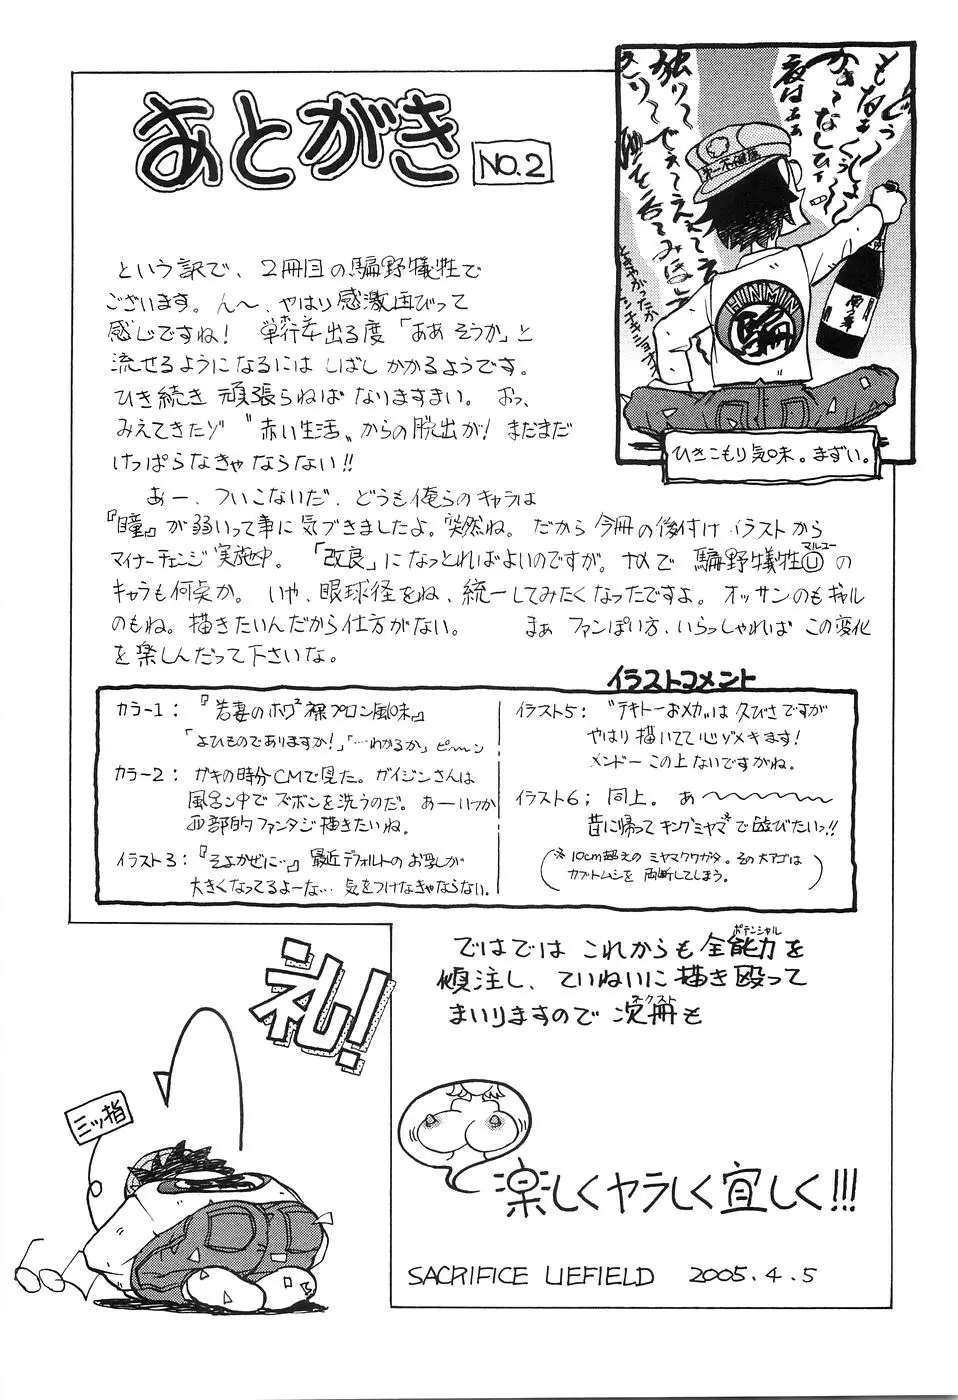 あとがき
NO.2
という訳で、2冊目の騙野犠牲で
ございます。ん〜、やはり感激画びって
感じですね! 単行本出る度「ああ そうか」と
流せるようになるには しばし かかるようです。
ひき続き 頑張らねば なりますまい。 おっ、
みえてきたゾ 〝赤い生活〟からの脱出が! まだまだ
けっぱらなきゃならない!!
あー、ついこないだ、どうも俺らのキャラは
『瞳』が弱いって事に気づきましたよ。突然ね。だから今冊の後付けイラストから
マイナーチェンジ実施中。「改良」になっとればよいのですが。なんで 騙野犠牲Ⓤの
マルユー
キャラも何点か。いや、眼球径をね、統一してみたくなったですよ。オッサンのもギャル
のもね。描きたいんだから仕方がない。 まぁ ファンぽい方、いらっしゃれば この変化
を楽しんだって下さいな。
HINMIN
騙
ひきこもり気味。まずい。
イラストコメント
カラー1: 『若妻のホワ²裸プロン風味』
「よひものでありますか!」「…わかるか」ピーン
カラー2: ガキの時分CMで見た。ガイジンさんは
風呂ン中で ズボンを洗うのだ。あーいつか
西部的ファンタジ描きたいね。
イラスト3:『そよかぜに…』最近デフォルトのお乳が
大きくなってるよーな…気をつけなきゃならない。
イラスト5: 〝テキトーおメカ〟は久びさですが
やはり描いてて心ゾメキます!
メンドー この上ないですがね。
イラスト6; 同上。あ〜〜〜〜〜
昔に帰ってキングミヤマ※で遊びたいっ!!
(※10cm超えのミヤマクワガタ。その大アゴは
カブトムシを両断してしまう。)
ではでは これからも全能力を
ポテンシャル
傾注し、ていねいに描き殴って
まいりますので 次冊も
ネクスト
礼!
三ッ指
楽しくヤラしく宜しく!!!
SACRIFICE LIEFIELD 2005.4.5